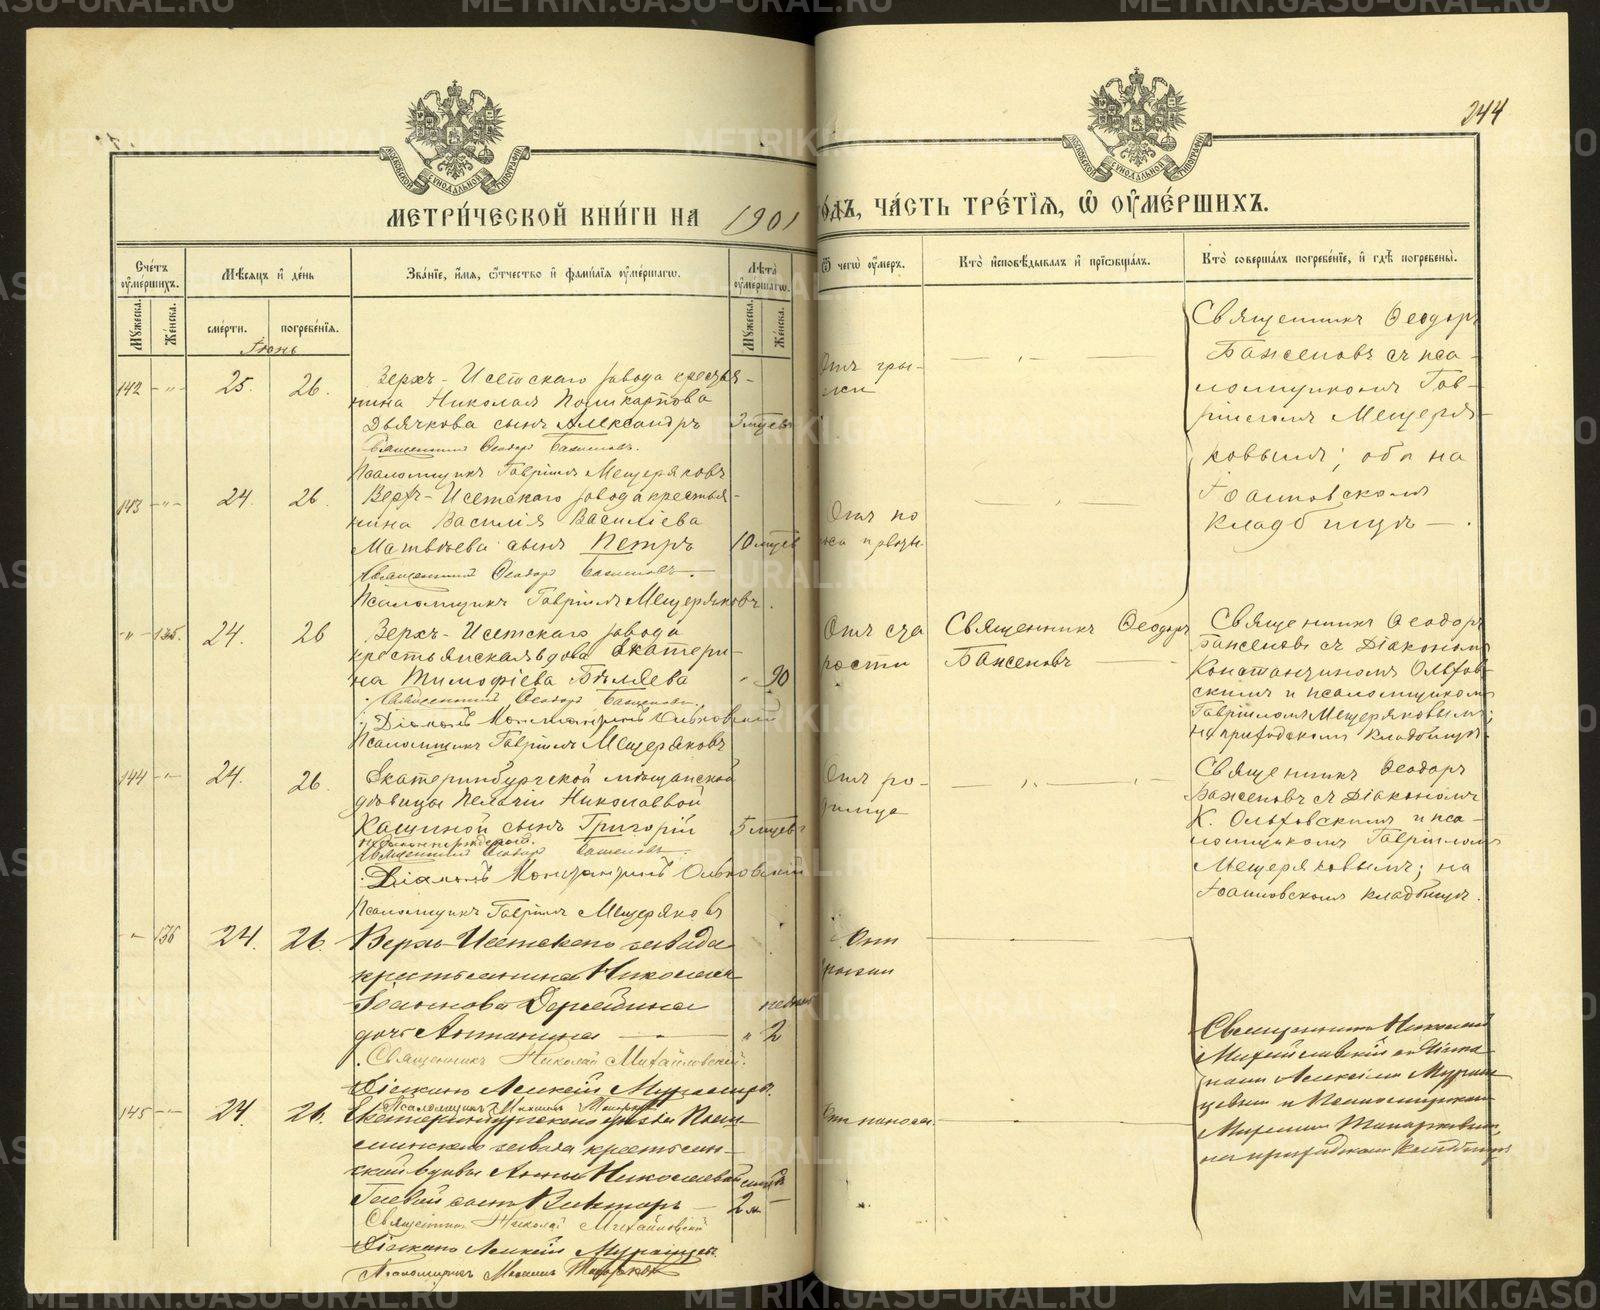 244
МЕТРИ́ЧЕСКОЙ КНИ́ГИ НА 1901
ГО́ДЪ, ЧА́СТЬ ТРЕ́ТІѦ, Ѿ ОУМЕ́РШИХЪ.
Сче́тъ оумершихъ.
Мꙋжеска.
Же́нска.
Мѣсяцъ и де́нь
сме́рти.
погребе́нїѧ.
Іюнь
Зва́нїе, и́мѧ, о́тчество и фами́лїѧ оуме́ршагѡ.
Лѣта оуме́ршагѡ.
Мꙋжеска.
Же́нска.
Ѿ чегѡ̀ оу́меръ.
Кто̀ исповѣ́дывалъ и прїѡбща́лъ.
Кто̀ соверша́лъ погребе́нїе, и гдѣ̀ погребены̀.
142 -"- 25. 26.
Верхъ-Исетскаго завода крестья-
нина Николая Поликарпова
Дьячкова сынъ Александръ
3 мѣсев
Священникъ Ѳеодоръ Баженовъ.
Псаломщикъ Гавріилъ Мещеряковъ
Отъ гры-
жи
Священникъ Ѳеодоръ
Баженовъ съ пса-
ломщикомъ Гав-
ріиломъ Мещеря-
ковымъ; оба на
Іоанновскомъ
кладбищѣ.
143 -"- 24. 26.
Верх-Исетскаго завода крестья-
нина Василія Василіева
Матвѣева сынъ Петръ
10 мѣсев
Священникъ Ѳеодоръ Баженовъ.
Псаломщикъ Гавріилъ Мещеряковъ.
Отъ по
носа
-"- 135. 24. 26
Верхъ-Исетскаго завода
крестьянская вдова Екатери-
на Тимофіева Бѣляева
" 90
Священникъ Ѳеодоръ Баженовъ.
Діаконъ Константинъ Ольховскій
Псаломщикъ Гавріилъ Мещеряковъ
Отъ ста
рости
Священникъ Ѳеодоръ
Баженовъ
Священникъ Ѳеодоръ
Баженовъ съ Діакономъ
Константиномъ Ольхов-
скимъ и псаломщикомъ
Гавріиломъ Мещеряковымъ;
на приходскомъ кладбищѣ.
144 -"- 24. 26.
Екатеринбургской мѣщанской
дѣвицы Пелагіи Николаевой
Кашиной сынъ Григорій
5 мѣсев
незаконнорожденный.
Священникъ Ѳеодоръ Баженовъ.
Діаконъ Константинъ Ольховскій
Псаломщикъ Гавріилъ Мещеряковъ
Отъ ро-
димца
Священникъ Ѳеодоръ
Баженовъ съ Діакономъ
К. Ольховскимъ и пса-
ломщикомъ Гавріиломъ
Мещеряковымъ; на
Іоанновскомъ кладбищѣ.
-"- 136 24. 26.
Верхъ-Исетскаго завода
крестьянина Николая
Іоаннова
дочь Антонина
" 2
Священникъ Николай Михайловскій.
Діаконъ Алексій
Псаломщикъ
Отъ
Священникъ Николай
Михайловскій съ Діако-
номъ Алексіемъ
и Псаломщикомъ
на приходскомъ кладбищѣ
145 -"- 24. 26.
Екатеринбургскаго уѣзда
завода крестьян-
ской вдовы Анны Николаевой
сынъ Викторъ
2 м.
Священникъ Николай Михайловскій
Діаконъ Алексій
Псаломщикъ
Отъ поноса.
METRIKI.GASO-URAL.RU